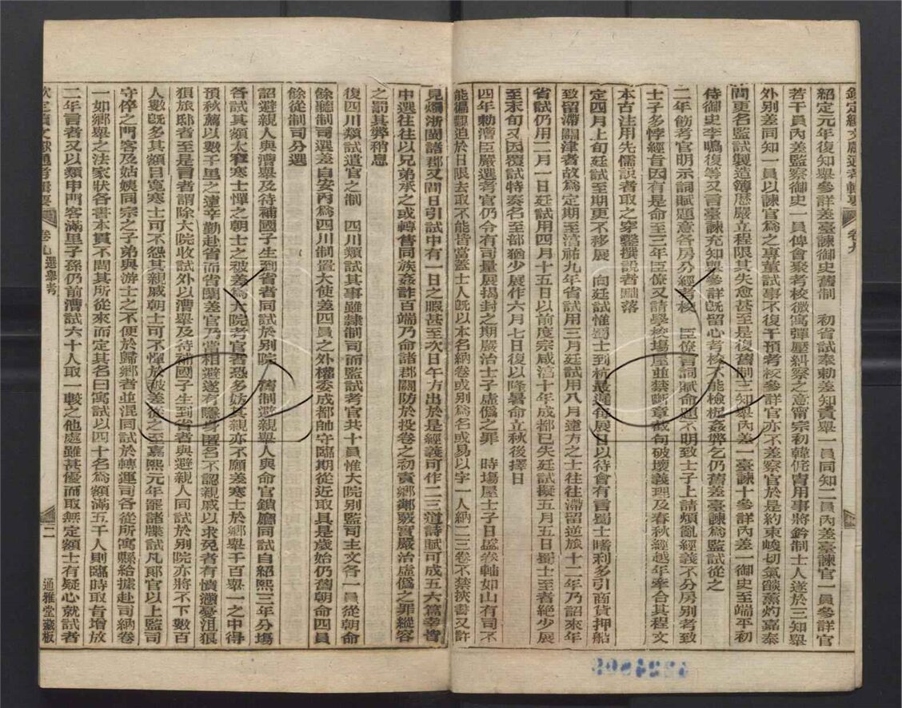 欽定續文獻通考輯要 卷九
紹定元年復知舉參詳差臺諫御史舊制 初省試奉勅差知貢舉一員同知二員內差臺諫官一員參詳官
若干員內差監察御史一員俾會聚考校微寓彈壓糾察之意甯宗初韓侂胄用事將鈐制士人遂於三知舉
外別差同知一員以諫官為之專董試事不復干預考校參詳官亦不差察官於是約束峻切氣燄薰灼嘉泰
間更名監試製造簿厯嚴立程限其失愈甚至是復舊制三知舉內差一臺諫十參詳內差一御史至端平初
侍御史李鳴復等又言臺諫充知舉參詳既留心考校不能檢柅姦弊乞仍舊差臺諫為監試從之
二年飭考官明示詞賦題意各房分經考校 臣僚言詞賦命題不明致士子上請煩亂經義不分房別考致
士子多悖經旨因有是命至三年臣僚又請學校場屋並禁斷章截句破壞義理及春秋經越年牽合其程文
本古注用先儒說者取之穿鑿撰說者黜落
定四月上旬廷試至期更不移展 向廷試惟蜀士到杭最遲每展日以待會有言蜀士嗜利多引商貨押船
致留滯關津者故為定期至淳祐九年省試用三月廷試用八月遠方之士往往滯留逆旅十二年乃詔來年
省試仍用二月一日廷試用四月十五日以前度宗咸淳十年成都已失廷試擬五月五日蜀士至者絕少展
至末旬又因覆試特奏名至部猶少展作六月七日復以隆暑命立秋後擇日
四年勅漕臣嚴選考官仍令有司量展揭封之期嚴治士子虛偽之罪 時場屋士子日盛卷軸如山有司不
能遍觀迫於日限去取不能皆當蓋士人既以本名納卷或別為名或易以字一人納二三卷不禁挾書又許
見燭浙閩諸郡又間日引試中有一日之暇甚至次日午方出於是經義可作二三道詩賦可成五六篇幸皆
中選往往以兄弟承之或轉售同族姦詐百端乃命諸郡關防於投卷之初責鄉鄰覈實嚴治虛偽之罪縱容
之罰其弊稍息
復四川類試遣官之制 四川類試其事雖隸制司而監試考官共十員惟大院別監司主文各一員從朝命
餘聽制司選差自安丙為四川制置大使差四員之外權委成都帥守臨期從近取具是歲始仍舊朝命四員
餘從制司分選
詔避親人與漕舉及待補國子生到省者同試於別院 舊制避親舉人與命官鎖廳同試自紹熙三年分場
各試其額太窄寒士憚之朝士之被差為大院考官者恐多妨其親亦不願差寒士於鄉舉千百舉一之中得
預秋薦以數千里之遠辛勤赴省而省闈差官乃當相避遂有隱身匿名不認親戚以求免者有憤懣憂沮狼
狽旅邸者至是言者謂除大院收試外以漕舉及待補國子生到省者與避親人同試於別院亦將不下數百
人數既多其額自寬寒士可不怨其親戚朝士可不憚於被差從之至嘉熙元年罷諸牒試凡郎官以上監司
守倅之門客及姑姨同宗之子弟與游士之不便於歸鄉者並混同試於轉運司各從所寓縣給據赴司納卷
一如鄉舉之法家狀各書本貫不問其所從來而定其名曰寓試以四十名為額滿五千人則臨時取旨增放
二年言者又以類申門客滿里子孫仍前漕試六十人取一較之他處雖甚優而取無定額士有疑心就試者
欽定續文獻通考輯要 卷九 選舉考 二 通雅堂藏板